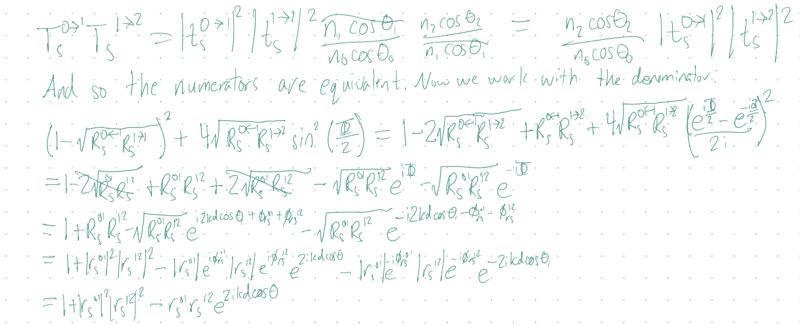 T_s^{0→1} T_s^{1→2} = |t_s^{0→1}|^2 |t_s^{1→2}|^2 \frac{n_1 cosθ_1}{n_0 cosθ_0} \frac{n_2 cosθ_2}{n_1 cosθ_1} = \frac{n_2 cosθ_2}{n_0 cosθ_0} |t_s^{0→1}|^2 |t_s^{1→2}|^2
And so the numerators are equivalent. Now we work with the denominator:
(1-\sqrt{R_s^{0←1} R_s^{1→2}})^2 + 4\sqrt{R_s^{0←1} R_s^{1→2}} sin^2(\frac{Φ}{2}) = 1-2\sqrt{R_s^{0←1} R_s^{1→2}} + R_s^{0←1} R_s^{1→2} + 4\sqrt{R_s^{0←1} R_s^{1→2}} (\frac{e^{i\frac{Φ}{2}} - e^{-i\frac{Φ}{2}}}{2i})^2
= 1-2\sqrt{R_s^{01} R_s^{12}} + R_s^{01} R_s^{12} + 2\sqrt{R_s^{01} R_s^{12}} - \sqrt{R_s^{01} R_s^{12}} e^{iΦ} - \sqrt{R_s^{01} R_s^{12}} e^{-iΦ}
= 1+R_s^{01} R_s^{12} - \sqrt{R_s^{01} R_s^{12}} e^{i2kdcosθ_1 + ϕ_{rs}^{01} + ϕ_{rs}^{12}} - \sqrt{R_s^{01} R_s^{12}} e^{-i2kdcosθ_1 - ϕ_{rs}^{01} - ϕ_{rs}^{12}}
= 1+|r_s^{01}|^2 |r_s^{12}|^2 - |r_s^{01}| e^{iϕ_{rs}^{01}} |r_s^{12}| e^{iϕ_{rs}^{12}} e^{2ikdcosθ_1} - |r_s^{01}| e^{-iϕ_{rs}^{01}} |r_s^{12}| e^{-iϕ_{rs}^{12}} e^{-2ikdcosθ_1}
= 1+|r_s^{01}|^2 |r_s^{12}|^2 - r_s^{01} r_s^{12} e^{2ikdcosθ}